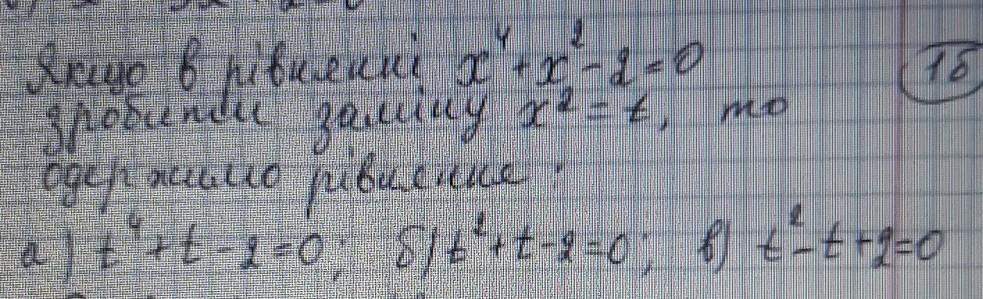 Якщо в рівнянні x⁴+x²-2=0 (1б)
зробити заміну x²=t, то
одержимо рівняння:
а) t⁴+t-2=0; б) t²+t-2=0; в) t²-t+2=0